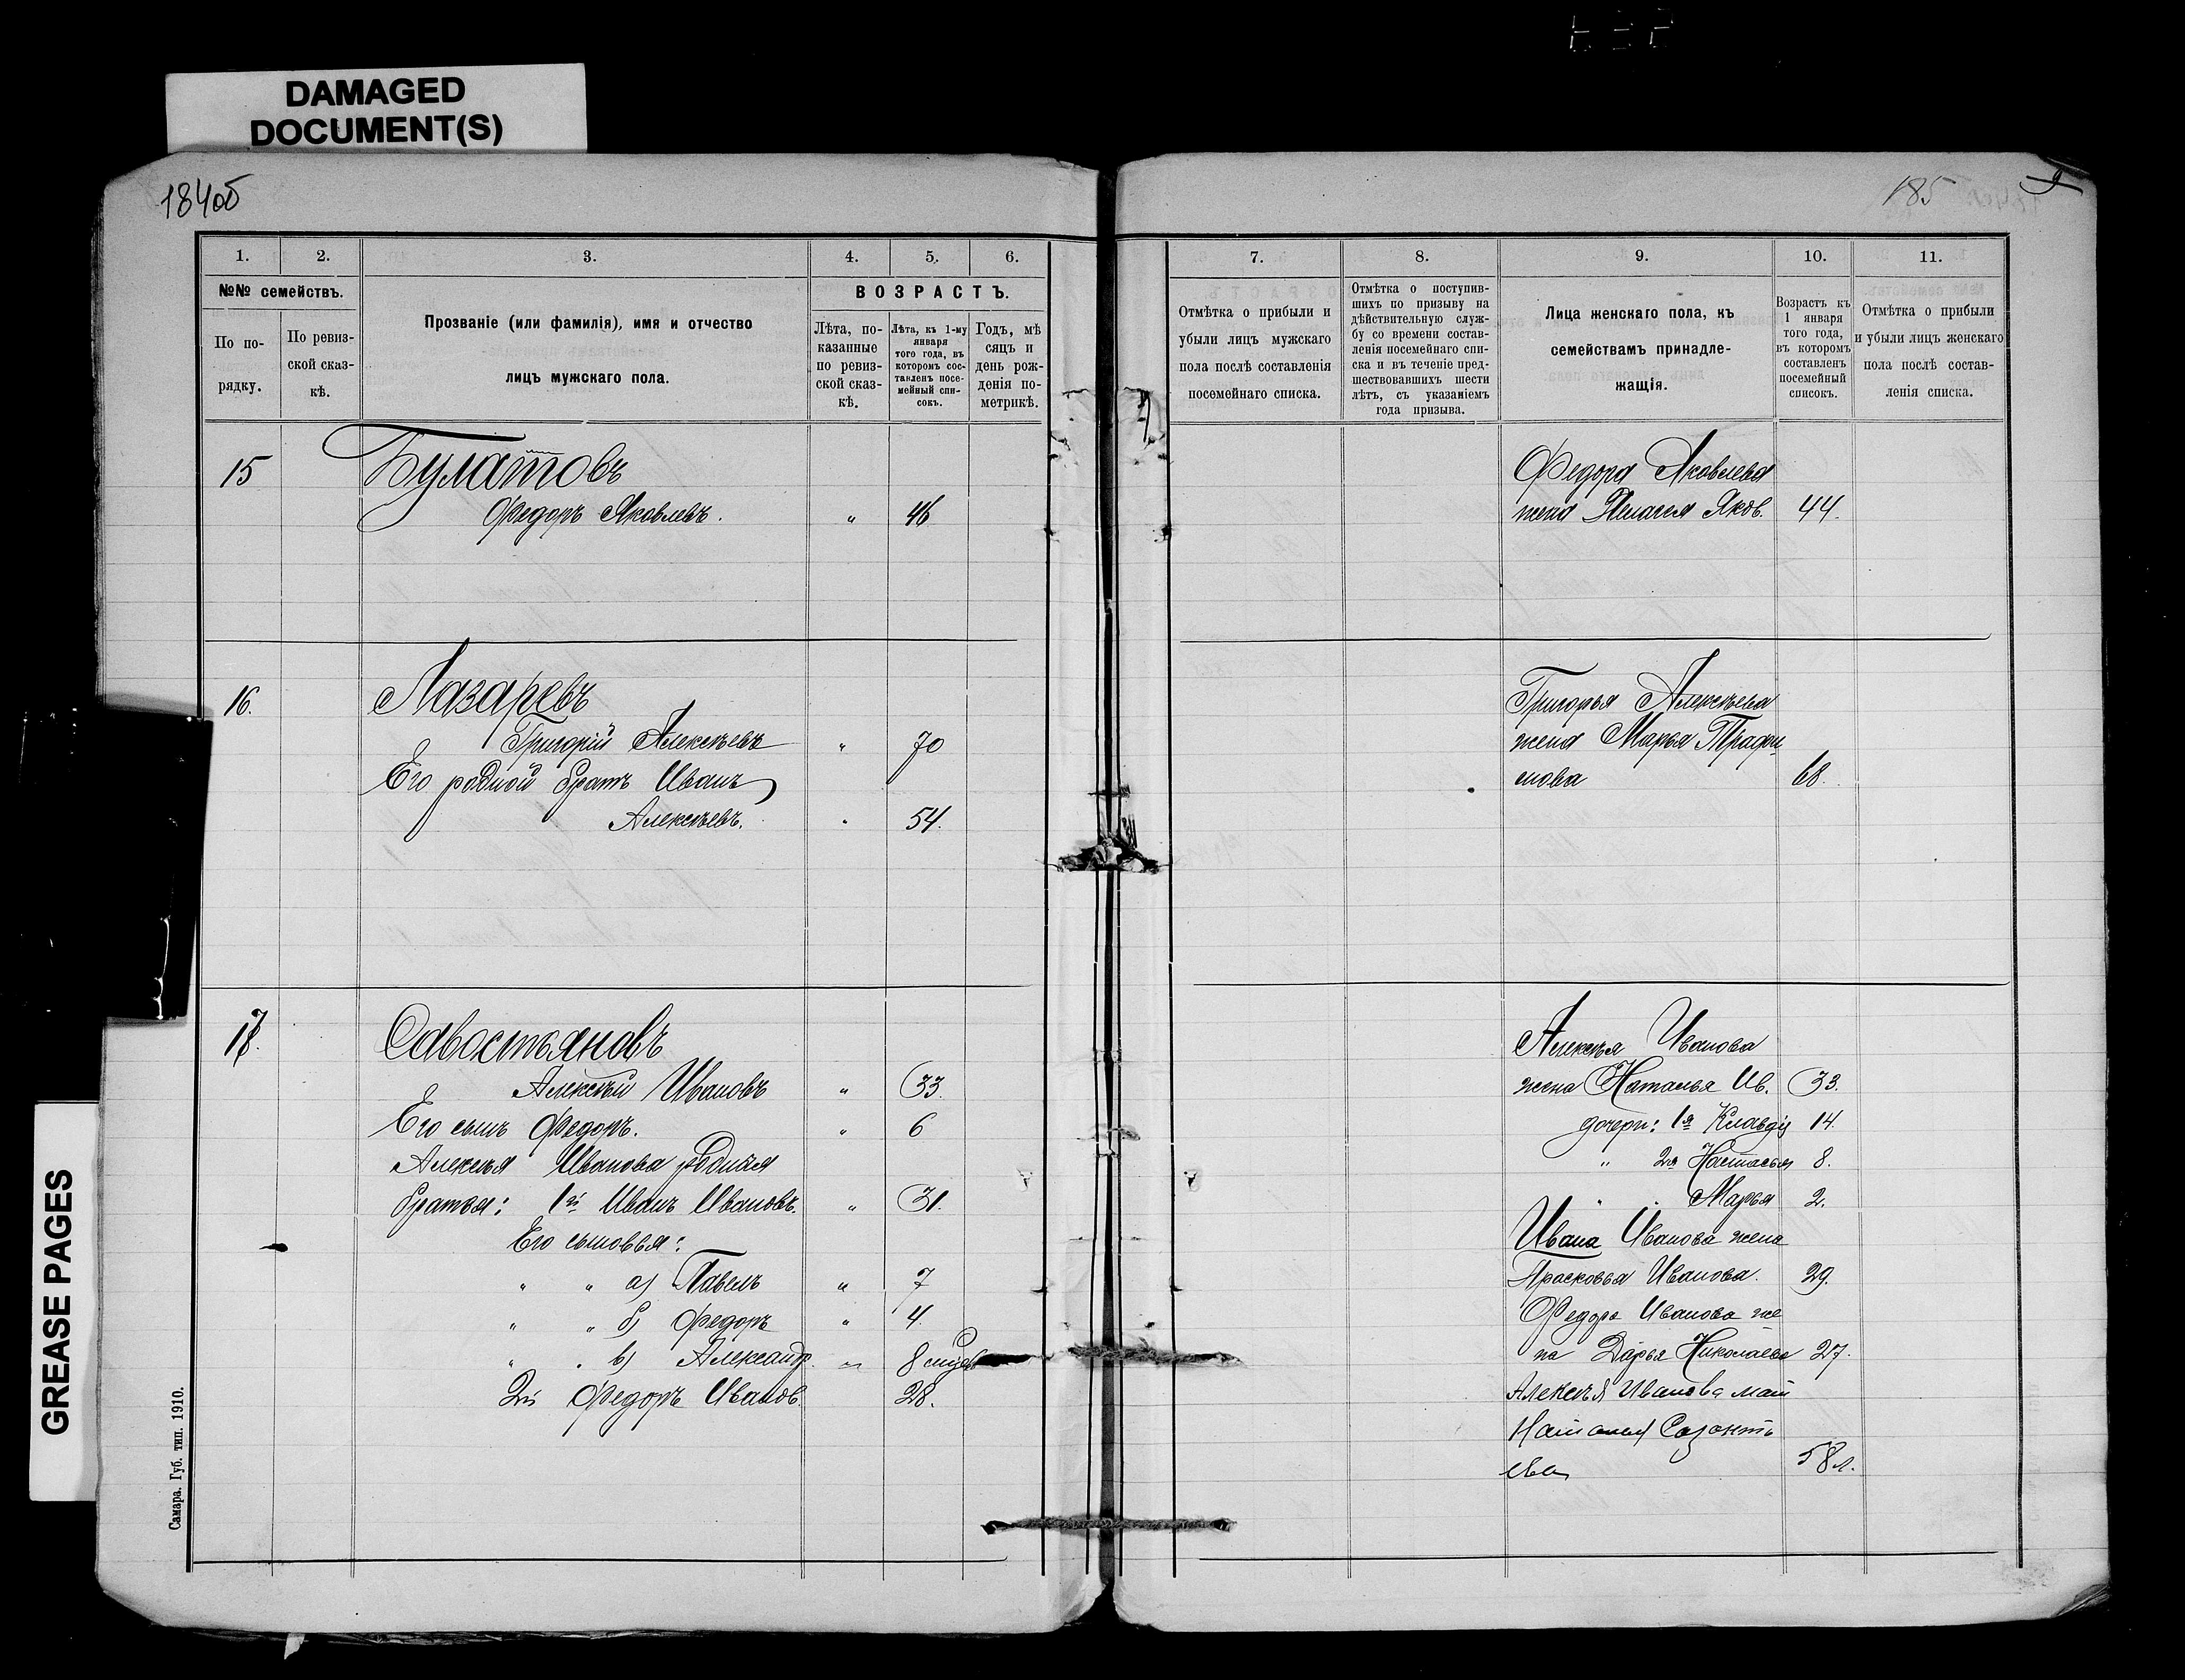 DAMAGED
DOCUMENT(S)
184об
185
1. 2. 3. 4. 5. 6.
№№ семействъ.
По по-
рядку.
По ревиз-
ской сказ-
кѣ.
Прозваніе (или фамилія), имя и отчество
лицъ мужскаго пола.
ВОЗРАСТЪ.
Лѣта, по-
казанные
по ревиз-
ской сказ-
кѣ.
Лѣта, къ 1-му
января
того года, въ
которомъ сос-
тавленъ посе-
мейный спи-
сокъ.
Годъ, мѣ
сяцъ и
день рож-
денія по-
метрикѣ.
15
Булатовъ
Федоръ Яковлевъ. " 46
16.
Лазаревъ
Григорій Алексѣевъ " 70
Его родной братъ Иванъ
Алексѣевъ. " 54.
17.
Савостьяновъ
Алексѣй Ивановъ " 33.
Его сынъ Федоръ. " 6
Алексѣя Иванова родныя
братья: 1й Иванъ Ивановъ. " 31.
Его сыновья:
" " а) Павелъ " 7
" " б) Федоръ " 4.
" " в) Александр. " 8
2й Федоръ Иванов. 28.
7. 8. 9. 10. 11.
Отмѣтка о прибыли и
убыли лицъ мужскаго
пола послѣ составленія
посемейнаго списка.
Отмѣтка о поступив-
шихъ по призыву на
дѣйствительную служ-
бу со времени состав-
ленія посемейнаго спи-
ска и въ теченіе пред-
шествовавшихъ шести
лѣтъ, съ указаніемъ
года призыва.
Лица женскаго пола, къ
семействамъ принадле-
жащія.
Возрастъ къ
1 января
того года,
въ которомъ
составленъ
посемейный
списокъ.
Отмѣтка о прибыли
и убыли лицъ женскаго
пола послѣ состав-
ленія списка.
Федора Яковлева
жена Пелагея Яков. 44.
Григорья Алексѣева
жена Марья Трафи
мова 68.
Алексѣя Иванова
жена Наталья Ив. 33.
дочери: 1я Клавдія 14.
" 2я Настасья 8.
" " Марья 2.
Ивана Иванова жена
Прасковья Иванова. 29.
Федора Иванова же
на Дарья Николаева 27.
Алексѣя Иванова мат
Созонть
ева 58 л.
GREASE PAGES
Самара. Губ. тип. 1910.